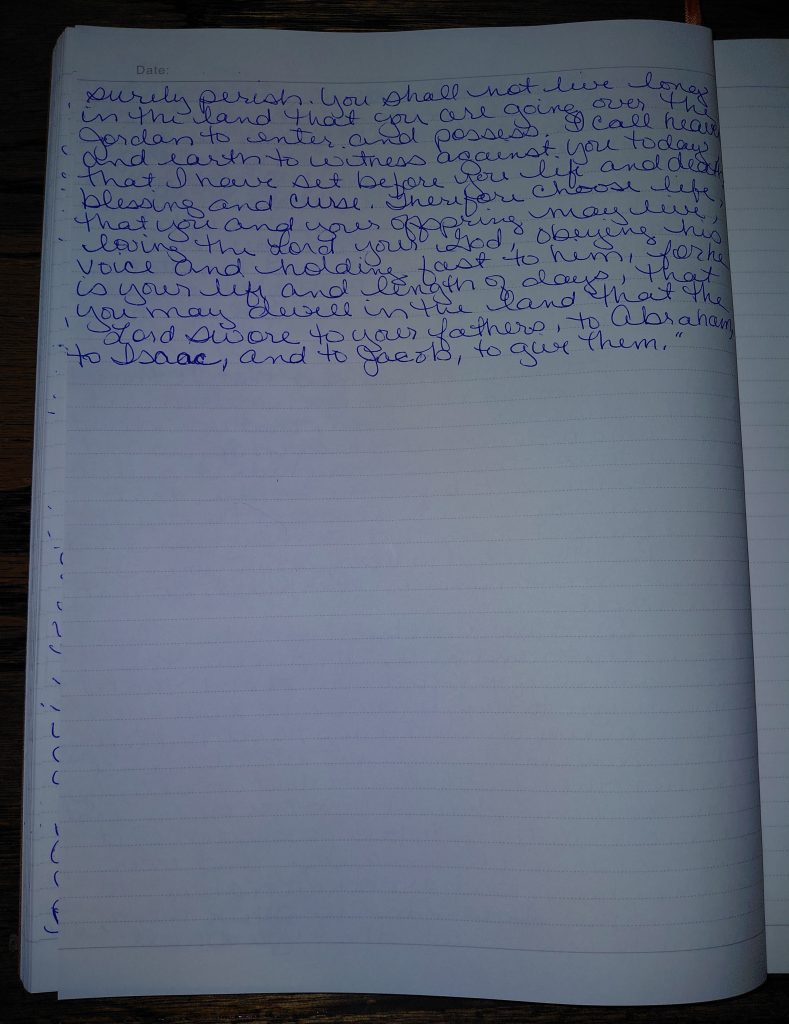 Date:
surely perish. You shall not live long
in the land that you are going over the
Jordan to enter and possess. I call heaven
and earth to witness against you today
that I have set before you life and death
blessing and curse. Therefore choose life,
that you and your offspring may live,
loving the Lord your God, obeying his
voice and holding fast to him, for he
is your life and length of days, that
you may dwell in the land that the
Lord swore to your fathers, to Abraham,
to Isaac, and to Jacob, to give them."